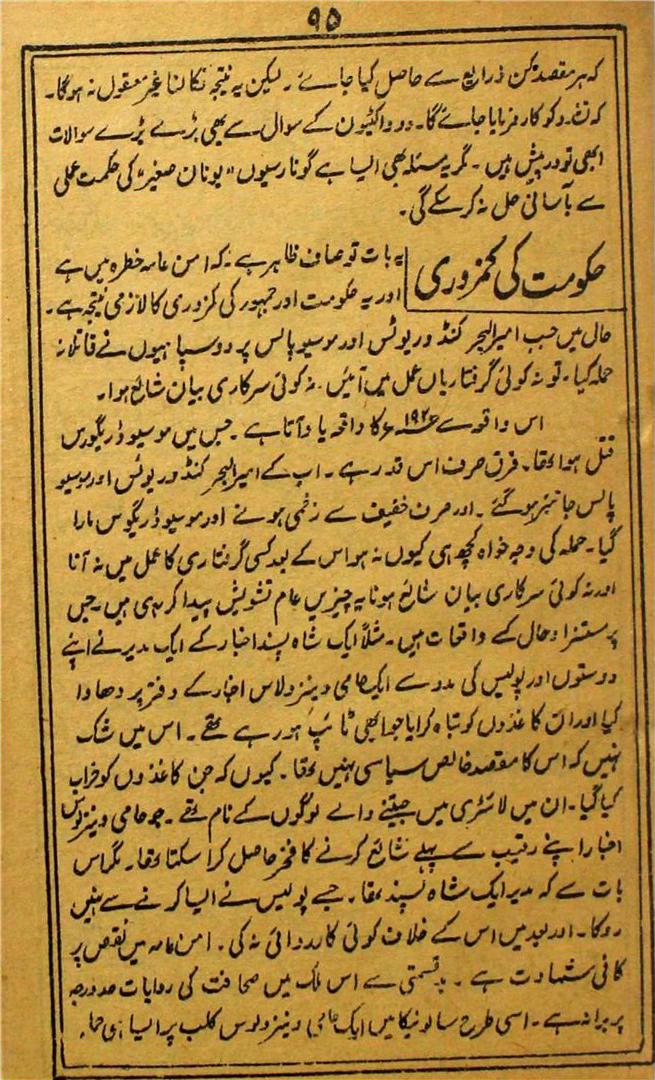 ۹۵
کہ ہر مقصد ممکن ذرایع سے حاصل کیا جائے۔ لیکن یہ نتیجہ نکالنا غیر معقول نہ ہوگا۔
کہ تشدد کو کار فرمایا جائے گا۔ دوداکٹیون کے سوال سے بھی بڑے بڑے سوالات
ابھی تو درپیش ہیں۔ گر یہ مسئلہ بھی ایسا ہے گوناریسوں "یونان صغیر" کی حکمت عملی
سے بآسانی حل نہ کرسکے گی۔
حکومت کی کمزوری
یہ بات تو صاف ظاہر ہے۔ کہ امن عامہ خطرہ میں ہے
اور یہ حکومت اور جمہور کی کمزوری کا لازمی نتیجہ ہے۔
حال میں جب امیر البحر کنڈ وریوٹس اور موسیو پالس پر دو سپاہیوں نے قاتلانہ
حملہ کیا۔ تو نہ کوئی گرفتاریاں عمل میں آئیں۔ نہ کوئی سرکاری بیان شائع ہوا۔
اس واقعہ سے کا واقعہ یاد آتا ہے۔ جس میں موسیو ڈریگورس
قتل ہوا تھا۔ فرق صرف اس قدر ہے۔ اب کے امیر البحر کنڈ وریوٹس اور موسیو
پالس جانبر ہوگئے۔ اور صرف خفیف سے زخمی ہوئے اور موسیو ڈریگوس مارا
گیا۔ حملہ کی وجہ خواہ کچھ ہی کیوں نہ ہو اس کے بعد کسی گرفتاری کا عمل میں نہ آنا
اور نہ کوئی سرکاری بیان شائع ہونا یہ چیزیں عام تشویش پیدا کر رہی ہیں۔ جس
پر مستزاد حال کے واقعات ہیں۔ مثلاً ایک شاہ پسند اخبار کے ایک مدیر نے اپنے
دوستوں اور پولیس کی مدد سے ایک حامی وینزولاس اخبار کے دفتر پر دھاوا
کیا اور ان کاغذوں کو تباہ کرایا جو ابھی ٹائپ ہو رہے تھے۔ اس میں شک
نہیں کہ اس کا مقصد خالص سیاسی نہیں تھا۔ کیوں کہ جن کاغذوں کو خراب
کیا گیا۔ ان میں لاٹری میں جیتنے والے لوگوں کے نام تھے۔ جو حامی وینزلوس
اخبار اپنے رقیب سے پہلے شائع کرنے کا فخر حاصل کرا سکتا تھا۔ مگر اس
بات سے کہ مدیر ایک شاہ پسند تھا۔ جسے پولیس نے ایسا کرنے سے نہیں
روکا۔ اور بعد میں اس کے خلاف کوئی کارروائی نہ کی۔ امن عامہ میں نقص پر
کافی شہادت ہے۔ بدقسمتی سے اس ملک میں صحافت کی روایات حد درجہ
پربرانہ ہے۔ اسی طرح سالونیکا میں ایک حامی وینزولوس کلب پر ایسا ہی حملہ